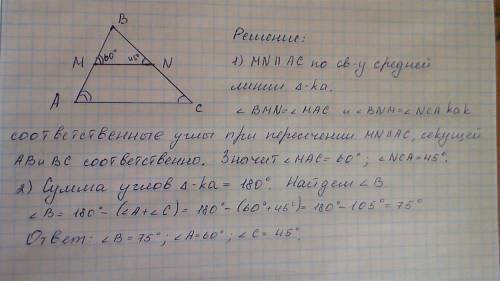 B
M 60° 45° N
A
C
Решение:
1) MN || AC по св-у средней
линии Δ-ка.
∠BMN=∠MAC и ∠BNM=∠NCA как
соответственные углы при пересечении MN||AC, секущей
AB и BC соответственно. Значит ∠MAC=60°; ∠NCA=45°.
2) Сумма углов Δ-ка = 180°. Найдем ∠B
∠B = 180°-(∠A+∠C) = 180°-(60°+45°)=180°-105°=75°
Ответ: ∠B=75°; ∠A=60°; ∠C=45°.